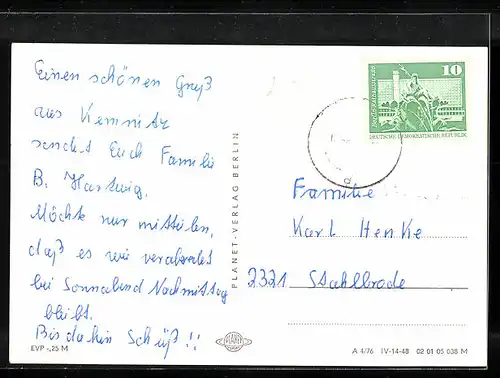 Einen schönen Gruß
aus Kemnitz
sendet Euch Familie
B. Hartwig.
Möchte nur mitteilen,
daß es wie verabredet
bei Sonnabend Nachmittag
bleibt.
Bis dahin Schüß!!
EVP -,25 M
PLANET-VERLAG BERLIN
PLANET
10
DEUTSCHE DEMOKRATISCHE REPUBLIK
Familie
Karl Henke
2321 Stahlbrode
A 4/76 IV-14-48 02 01 05 038 M